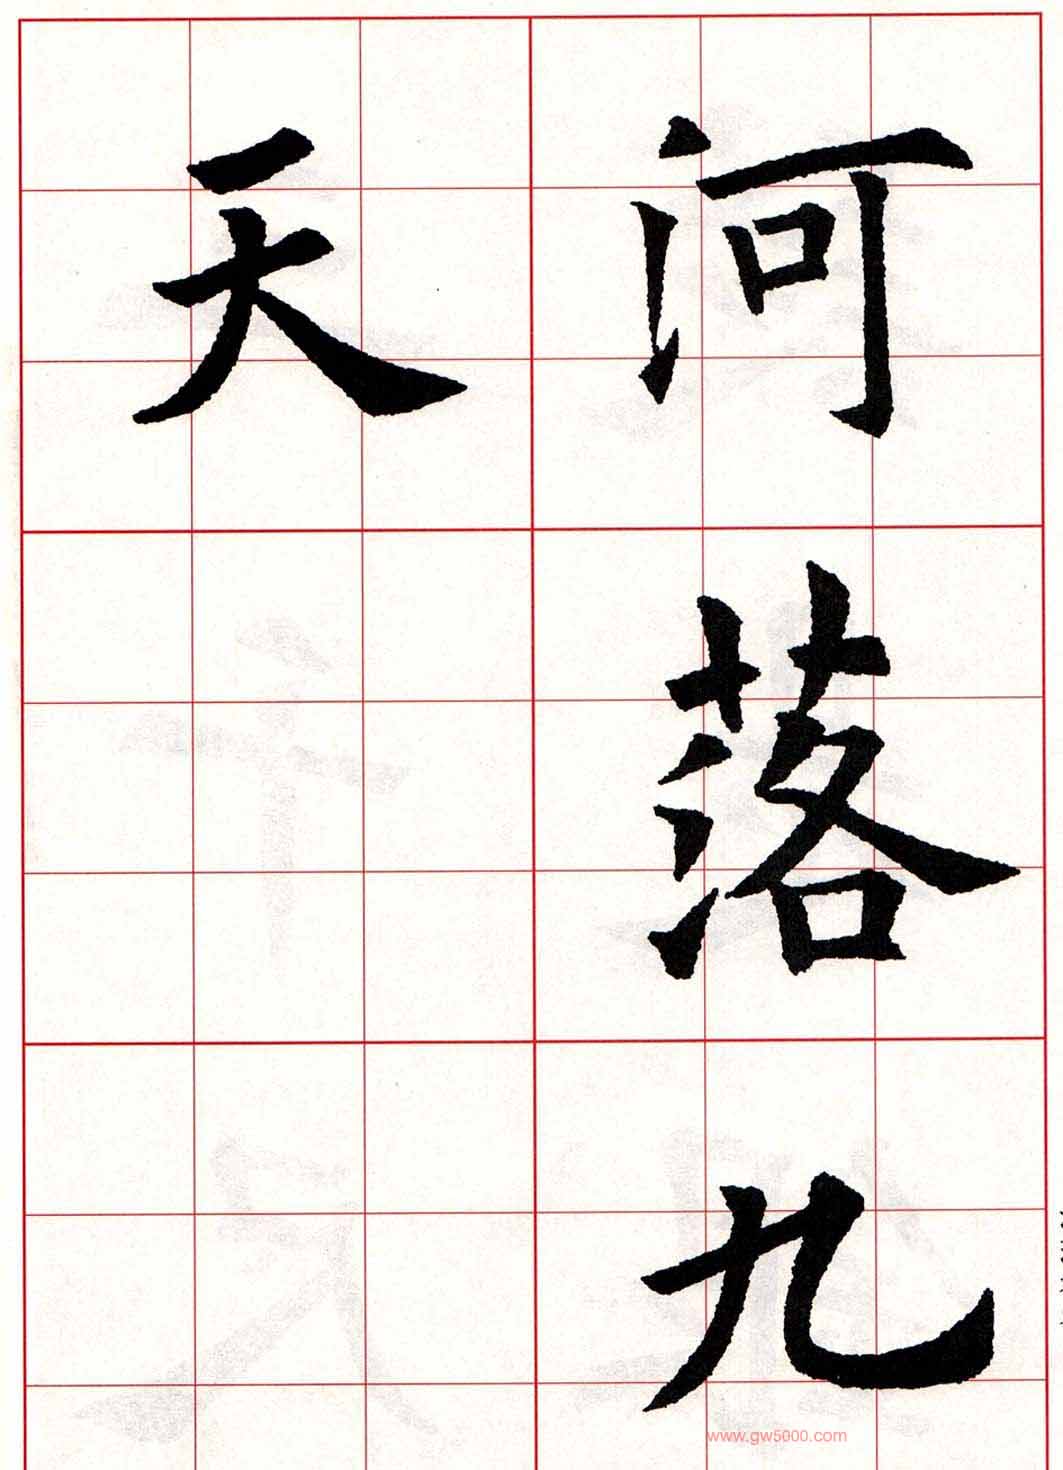 河落九
天
www.gw5000.com